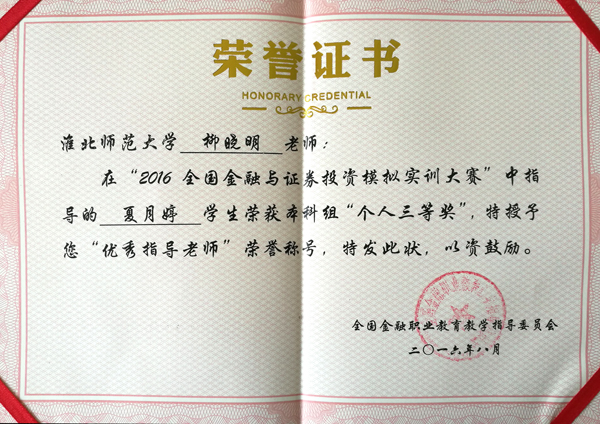 荣誉证书
HONORARY CREDENTIAL
淮北师范大学 柳晓明 老师：
在“2016 全国金融与证券投资模拟实训大赛”中指
导的 夏月婷 学生荣获本科组“个人三等奖”，特授予
您“优秀指导老师”荣誉称号，特发此状，以资鼓励。
全国金融职业教育教学指导委员会
二〇一六年八月